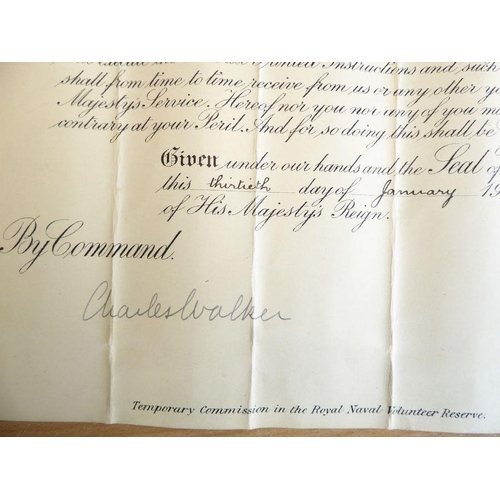 the Instructions and such
shall from time to time receive from us or any other yo
Majesty's Service. Hereof nor you nor any of you ma
contrary at your Peril. And for so doing this shall be
Given under our hands and the Seal of
this thirtieth day of January 19
of His Majesty's Reign.
By Command.
Charles Walker
Temporary Commission in the Royal Naval Volunteer Reserve.